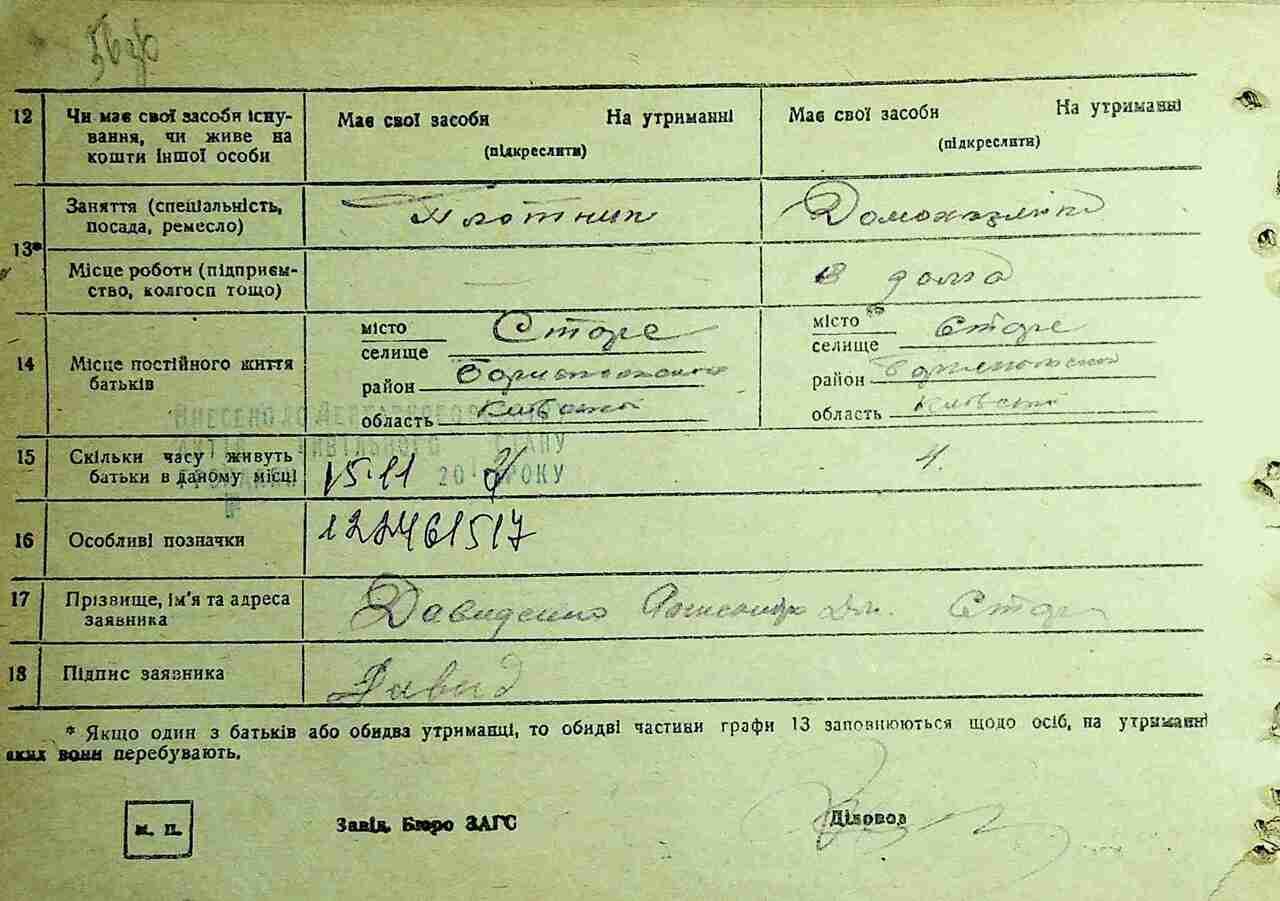 12 Чи має свої засоби існу-
вання, чи живе на
кошти іншої особи
Має свої засоби На утриманні
(підкреслити)
Має свої засоби На утриманні
(підкреслити)
13*
Заняття (спеціальність,
посада, ремесло)
Плотник
Домохазяйка
Місце роботи (підприєм-
ство, колгосп тощо)
—
14 Місце постійного життя
батьків
місто
селище
Старе
район Бориспольский
область Київської
місто
селище
Старе
район Бориспольский
область Київської
АКТІВ ЦИВІЛЬНОГО СТАНУ
20 РОКУ
15 Скільки часу живуть
батьки в даному місці
15.11
16 Особливі позначки
122461517
17 Прізвище, ім'я та адреса
заявника
Давиденко Старе
18 Підпис заявника
Давид
* Якщо один з батьків або обидва утриманці, то обидві частини графи 13 заповнюються щодо осіб, на утриманні
яких вони перебувають.
м. п.
Завід. Бюро ЗАГС
Діловод